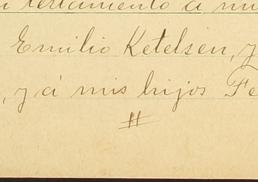 testamento a mi
Emilio Ketelsen, y
, y á mis hijos Fe
#